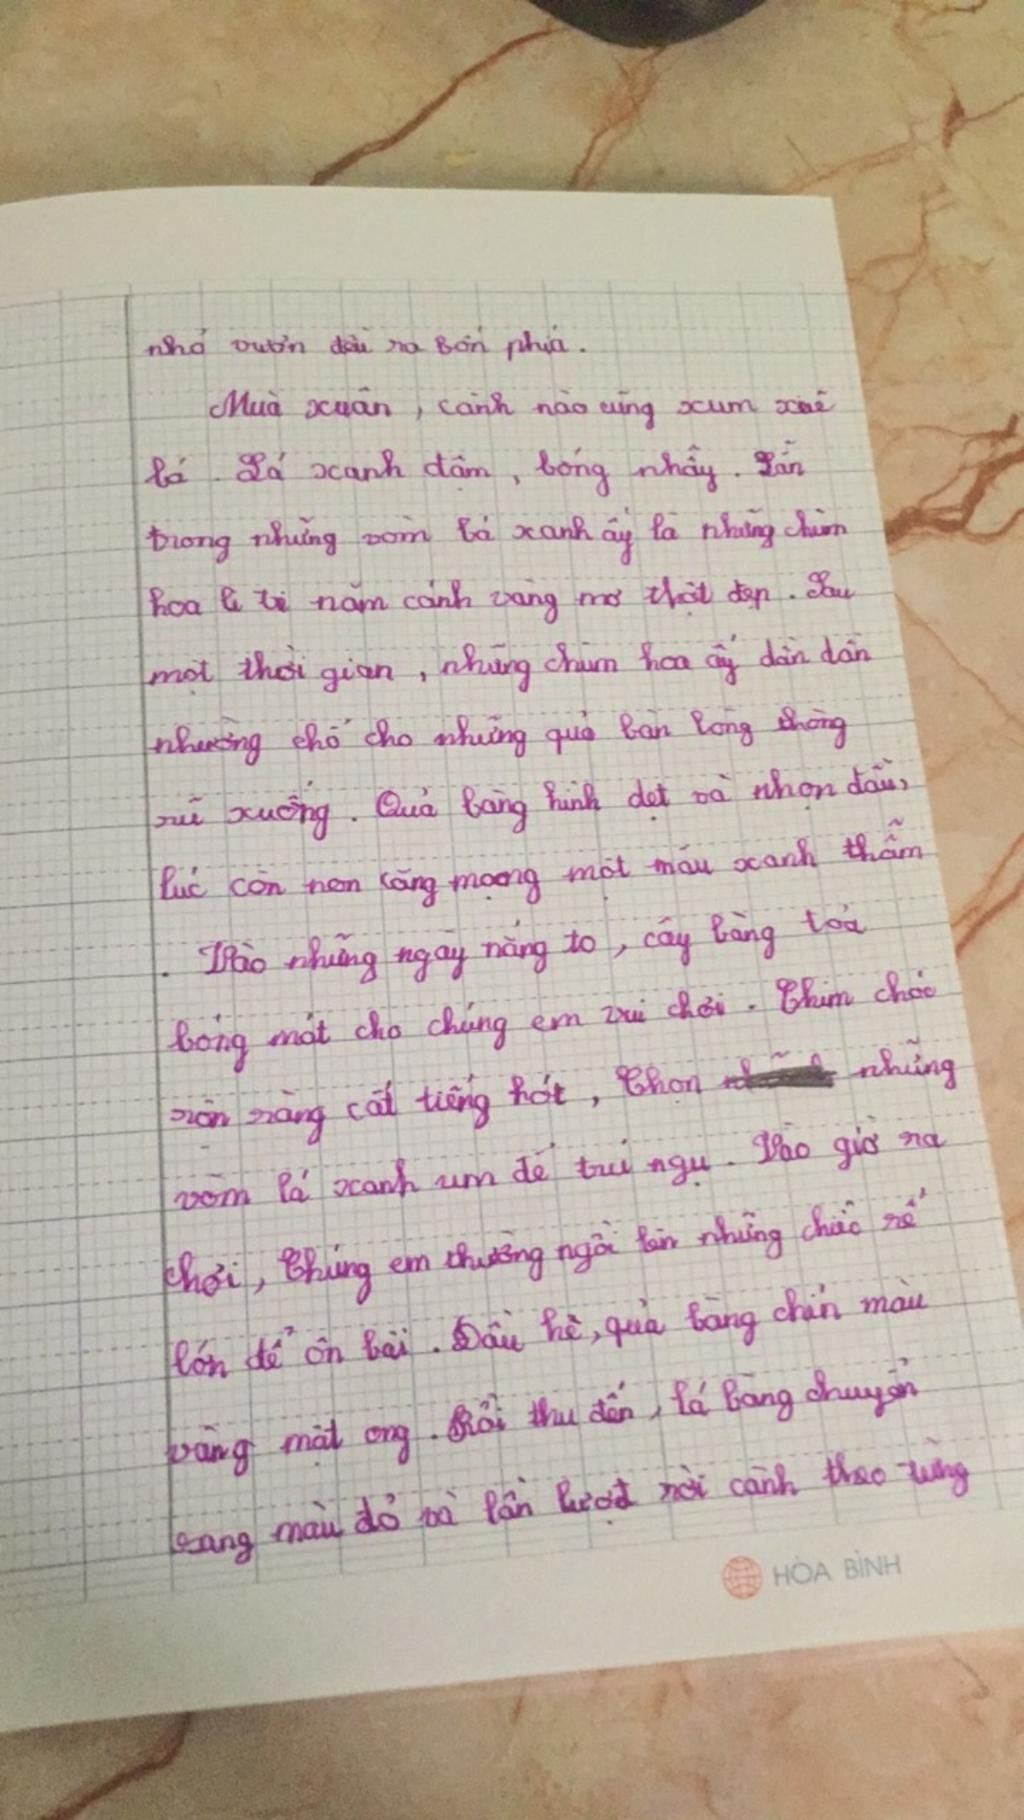 nhỏ vươn dài ra bốn phía.
Mùa xuân, cành nào cũng xum xuê
lá. Lá xanh đậm, bóng nhẫy. Lẩn
trong những vòm lá xanh ấy là những chùm
hoa li ti năm cánh vàng mơ thật đẹp. Sau
một thời gian, những chùm hoa ấy dần dần
nhường chỗ cho những quả bàn lòng thòng
rũ xuống. Quả bàng hình dẹt và nhọn đầu,
lúc còn non căng mọng một màu xanh thẫm
. Vào những ngày nắng to, cây bàng toả
bóng mát cho chúng em vui chơi. Chim chóc
rộn ràng cất tiếng hót, Chọn những
vòm lá xanh um để trú ngụ. Vào giờ ra
chơi, Chúng em thường ngồi lên những chiếc rễ
lớn để ôn bài. Đầu hè, quả bàng chín màu
vàng mật ong. Rồi thu đến, lá bàng chuyển
sang màu đỏ và lần lượt rời cành theo từng
HÒA BÌNH